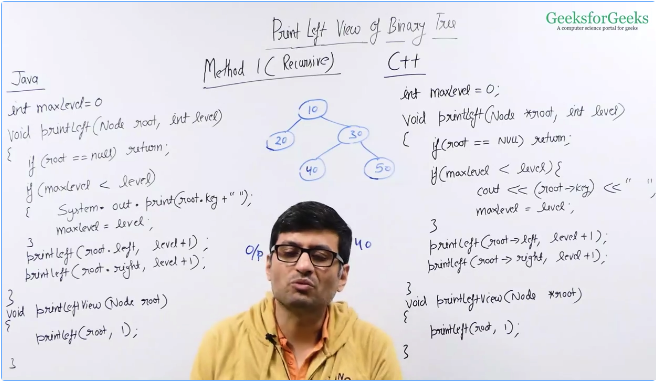 GeeksforGeeks
A computer science portal for geeks
Print Left View of Binary Tree
Method 1 (Recursive)
Java
int maxLevel=0
void printLeft(Node root, int level)
{
if (root == null) return;
if (maxLevel < level)
{ System.out.print(root.key + " ");
maxLevel = level;
}
printLeft(root.left, level+1);
printLeft(root.right, level+1);
}
void printLeftView(Node root)
{
printLeft(root, 1);
}
10
20 30
40 50
O/p
40
C++
int maxLevel = 0;
void printLeft(Node *root, int level)
{ if (root == NULL) return;
if (maxLevel < level) {
cout << (root->key) << " ";
maxLevel = level;
}
printLeft(root->left, level+1);
printLeft(root->right, level+1);
}
void printLeftView(Node *root)
{
printLeft(root, 1);
}